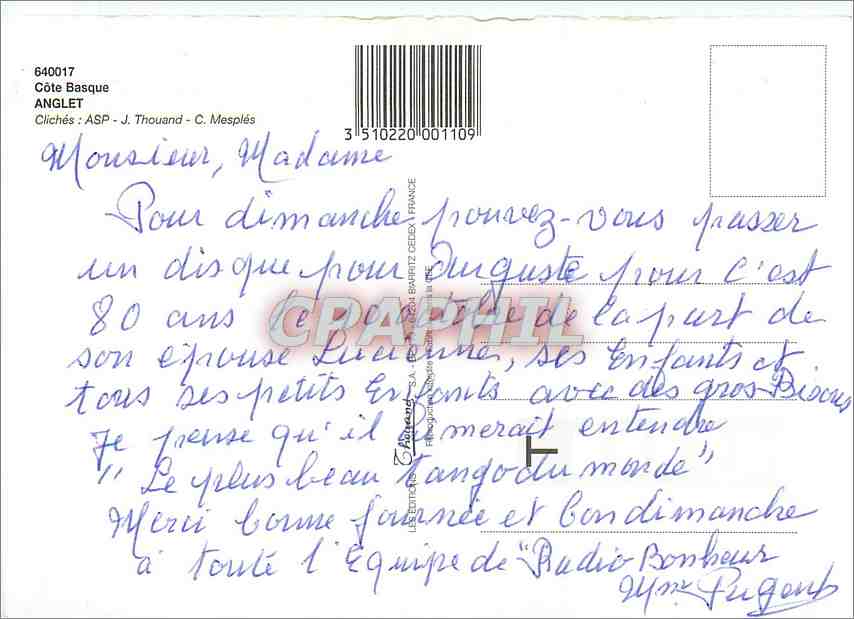 640017
Côte Basque
ANGLET
Clichés : ASP - J. Thouand - C. Mesplés
3 510220 001109
Monsieur, Madame
Pour dimanche pouvez-vous passer
un disque pour Auguste pour c'est
80 ans le octobre de la part de
son épouse Lucienne, ses Enfants et
tous ses petits Enfants avec des gros Bisous
Je pense qu'il aimerait entendre
"Le plus beau tango du monde"
Merci bonne journée et bon dimanche
à toute l'Equipe de "Radio Bonheur
Mme
LES EDITIONS Thouand S.A. - 64204 BIARRITZ CEDEX FRANCE
Reproduction interdite dans la CEE
CPAPHIL
T